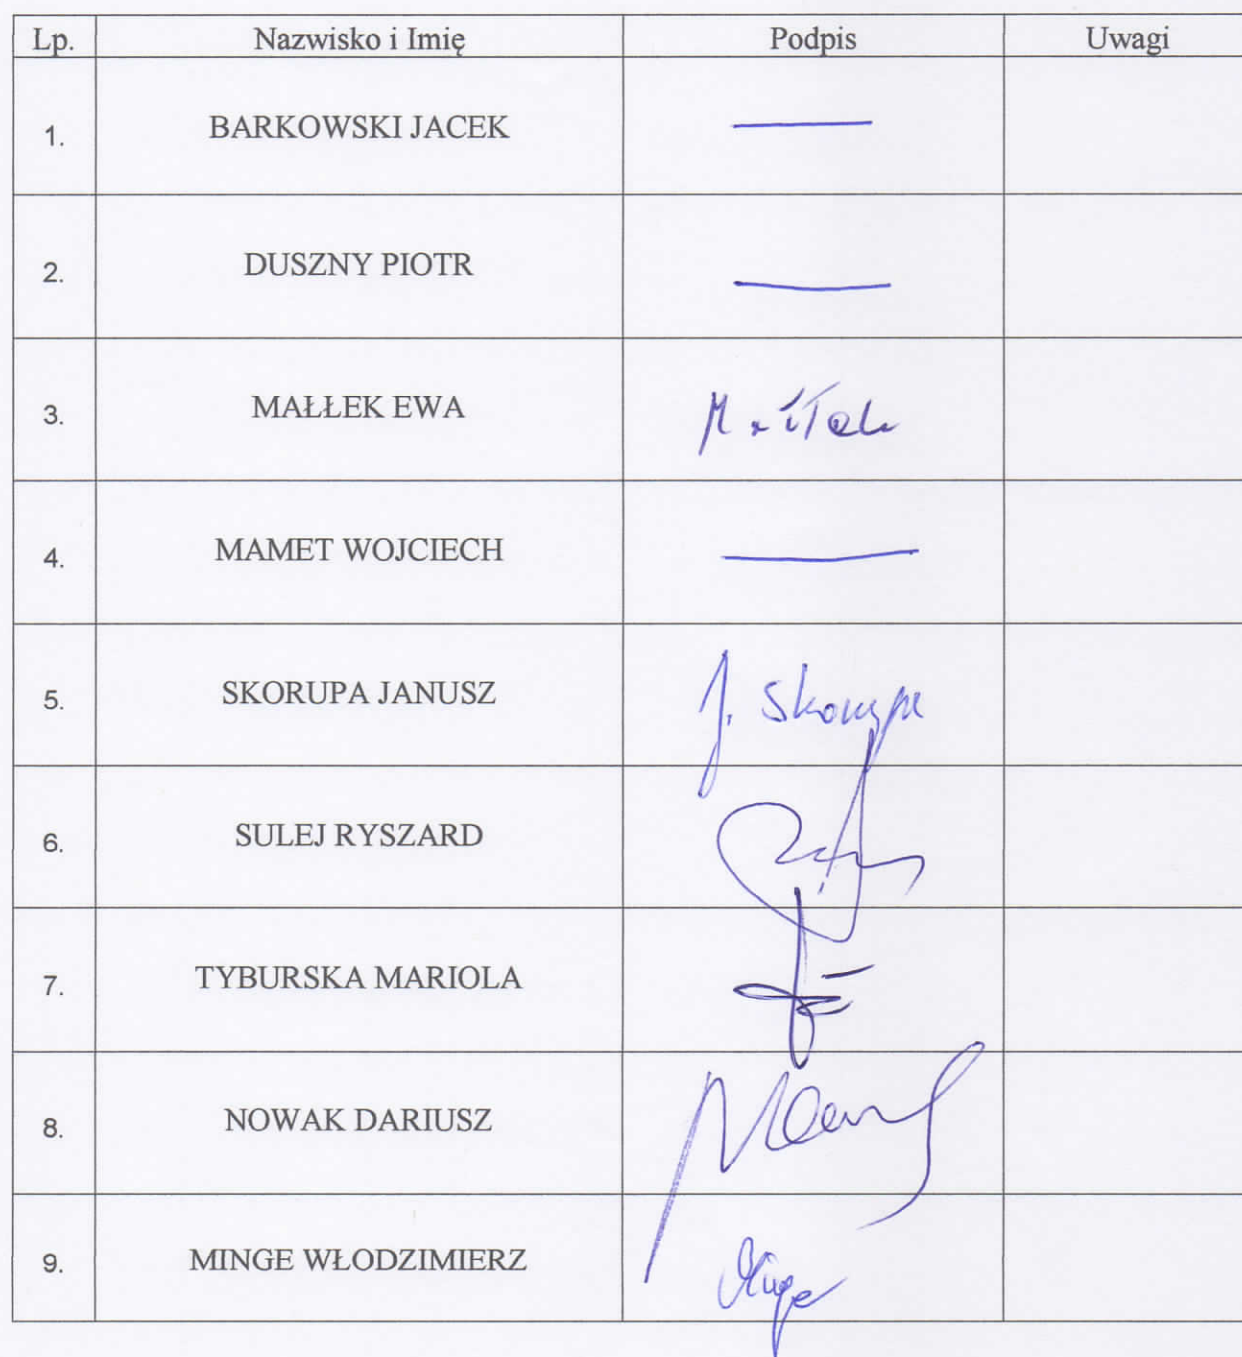 Lp. Nazwisko i Imię Podpis Uwagi
1. BARKOWSKI JACEK
2. DUSZNY PIOTR
3. MAŁŁEK EWA
4. MAMET WOJCIECH
5. SKORUPA JANUSZ J. Skorupa
6. SULEJ RYSZARD
7. TYBURSKA MARIOLA
8. NOWAK DARIUSZ
9. MINGE WŁODZIMIERZ Minge